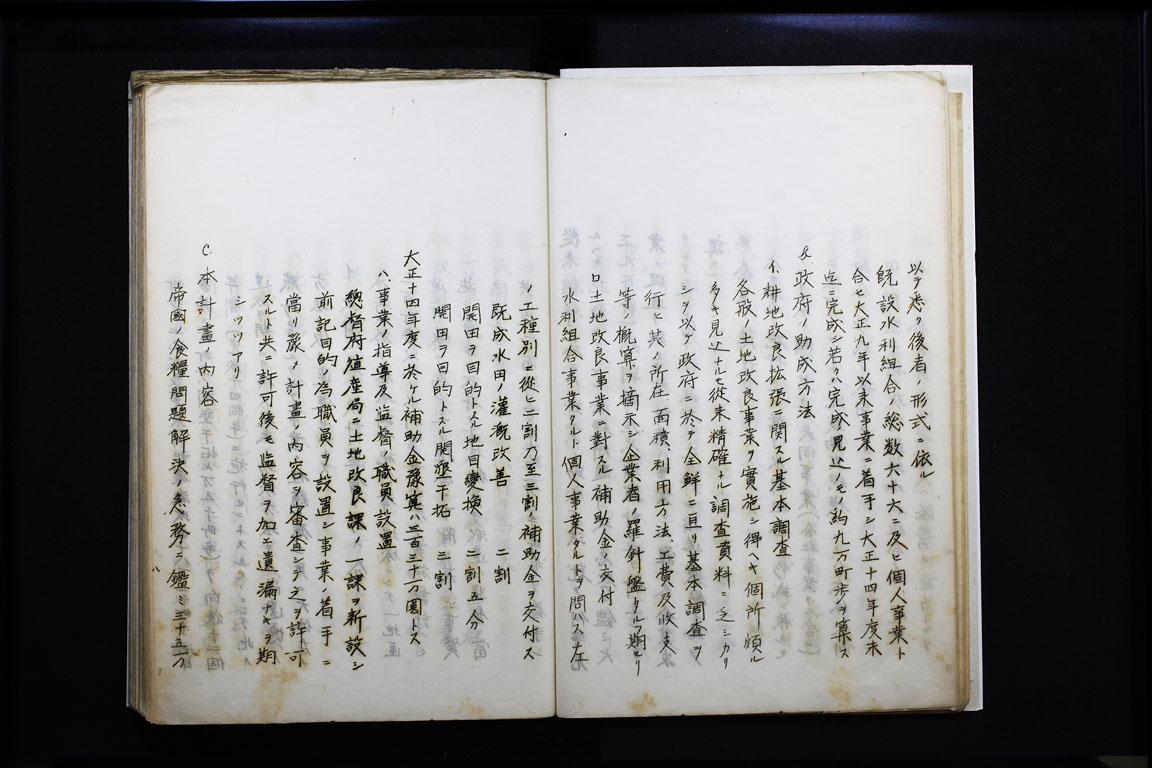 以テ悉ク後者ノ形式ニ依ル
既設水利組合ノ総数六十六ニ及ヒ個人事業ト
合セ大正九年以来事業ニ着手シ大正十四年度末
迄ニ完成シ若クハ完成見込ノモ約九万町歩ヲ算ス
b. 政府ノ助成方法
イ. 耕地改良拡張ニ関スル基本調査
各般ノ土地改良事業ヲ實施シ得ヘキ個所頗ル
多キ見込ナルモ従来精確ナル調査資料ニ乏シカリ
シヲ以テ政府ニ於テ全鮮ニ亘リ基本調査ヲ
行ヒ其ノ所在面積、利用方法、工費及収支
等ノ概算ヲ摘示シ企業者ノ羅針盤タルヲ期セリ
ロ. 土地改良事業ニ對スル補助金ノ交付
水利組合事業タルト個人事業タルトヲ問ハス左
ノ工種別ニ従ヒ二割乃至三割ノ補助金ヲ交付ス
既成水田ノ灌漑改善 二割
開田ヲ目的トスル地目變換 二割五分
開田ヲ目的トスル開墾干拓 三割
大正十四年度ニ於ケル補助金豫算ハ三百三十万圓トス
ハ. 事業ノ指導及監督ノ職員設置
總督府殖産局ニ土地改良課ノ一課ヲ新設シ
前記目的ノ為職員ヲ設置シ事業ノ着手ニ
當リ豫メ計畫ノ内容ヲ審査シテ之ヲ許可
スルト共ニ許可後モ監督ヲ加エ遺漏ナキヲ期
シツツアリ
C. 本計畫ノ内容
帝國ノ食糧問題解決ノ急務ラ鑑ミ三十五万